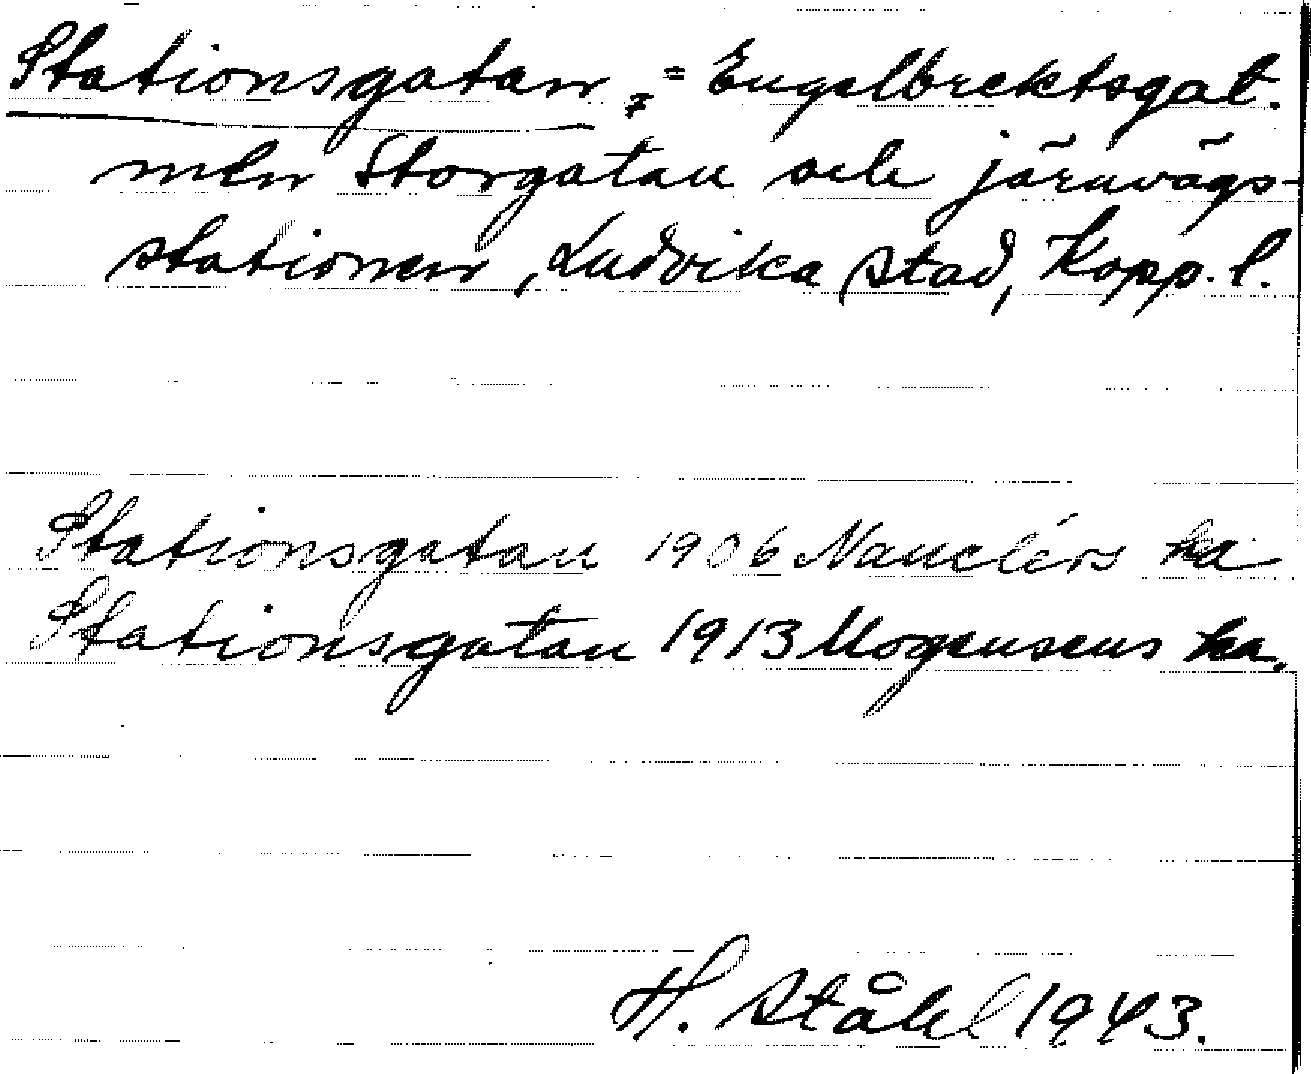 Stationsgatan, = Engelbrektsgat.
mln Storgatan och järnvägs-
stationen, Ludvika stad, Kopp. l.
Stationsgatan 1906 Nauclérs ka
Stationsgatan 1913 Mogensens ka.
H. Ståhl 1943.